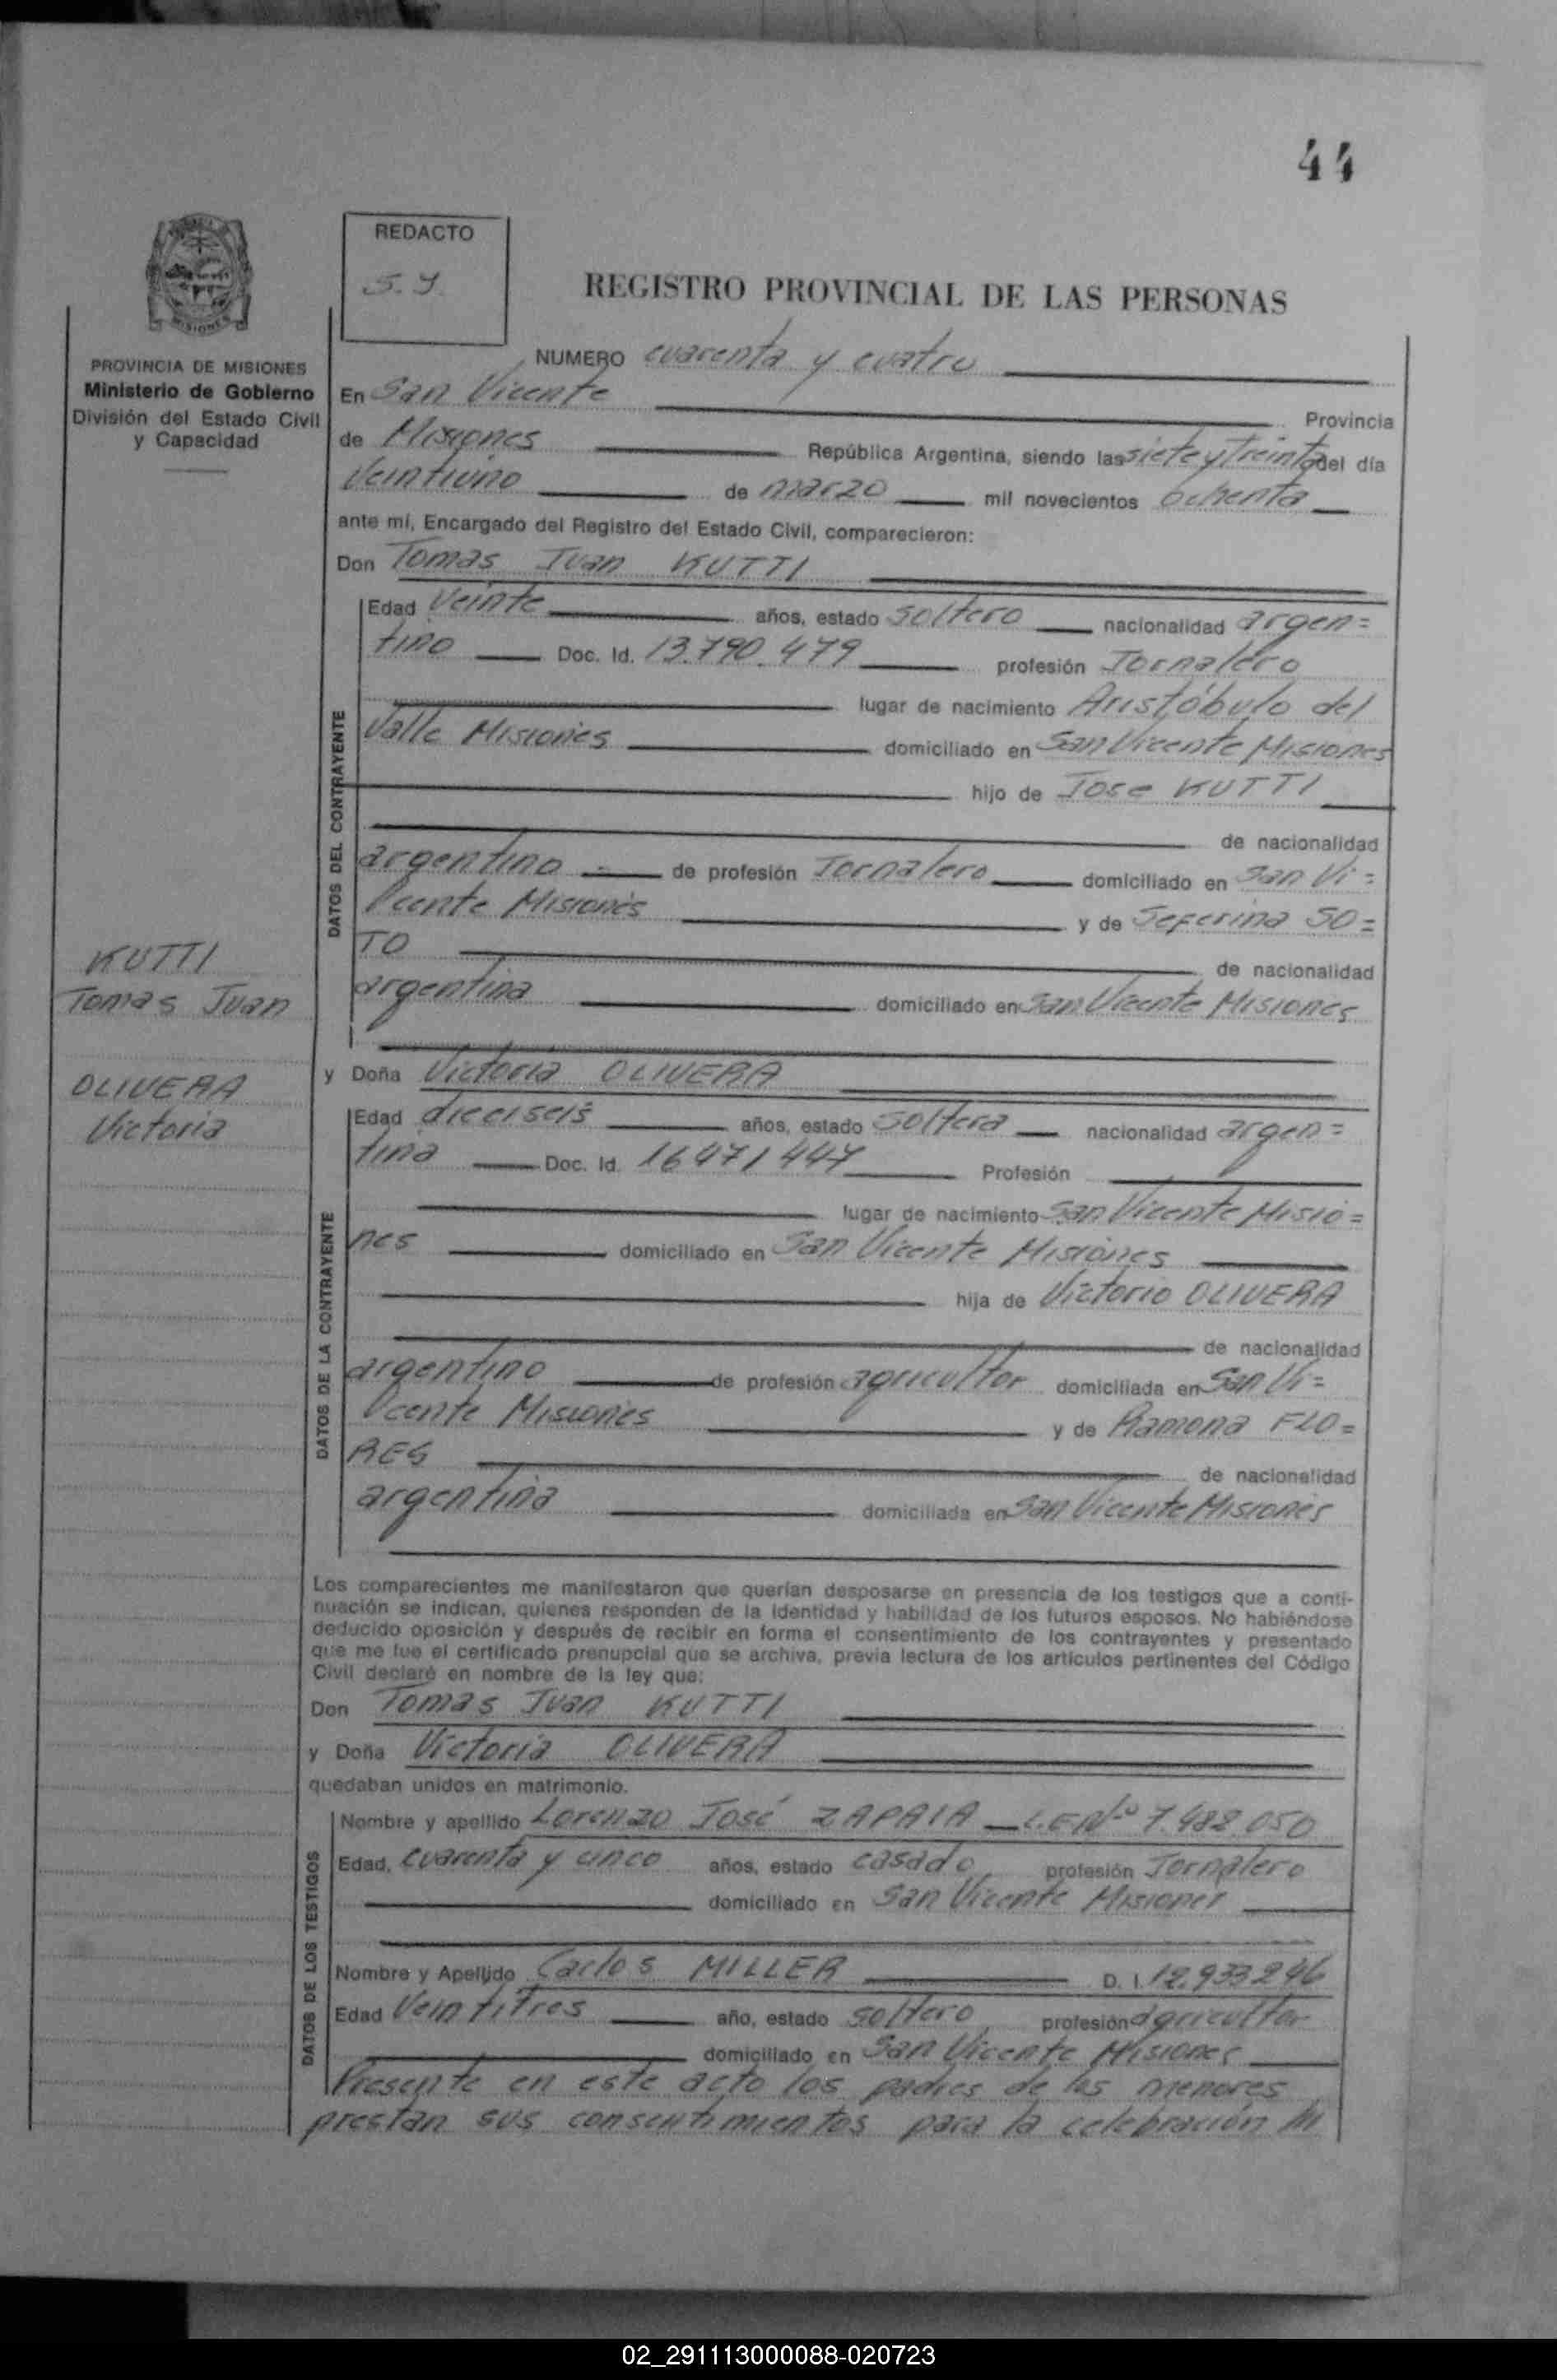 44
REDACTO
S. Y.
REGISTRO PROVINCIAL DE LAS PERSONAS
MISIONES
PROVINCIA DE MISIONES
Ministerio de Gobierno
División del Estado Civil
y Capacidad
NUMERO cuarenta y cuatro
En San Vicente Provincia
de Misiones República Argentina, siendo las siete y treinta del día
veintiuno de marzo mil novecientos ochenta
ante mí, Encargado del Registro del Estado Civil, comparecieron:
Don Tomas Juan KUTTI
DATOS DEL CONTRAYENTE
Edad veinte años, estado soltero nacionalidad argen=
tino Doc. Id. 13.790.479 profesión Jornalero
lugar de nacimiento Aristóbulo del
Valle Misiones domiciliado en San Vicente Misiones
hijo de Jose KUTTI
de nacionalidad
argentino de profesión Jornalero domiciliado en San Vi=
cente Misiones y de Seferina SO=
TO de nacionalidad
argentina domiciliado en San Vicente Misiones
KUTTI
Tomas Juan
OLIVERA
Victoria
y Doña Victoria OLIVERA
DATOS DE LA CONTRAYENTE
Edad dieciseis años, estado soltera nacionalidad argen=
tina Doc. Id. 16471447 Profesión
lugar de nacimiento San Vicente Misio=
nes domiciliado en San Vicente Misiones
hija de Victorio OLIVERA
de nacionalidad
argentino de profesión agricultor domiciliada en San Vi=
cente Misiones y de Ramona FLO=
RES de nacionalidad
argentina domiciliada en San Vicente Misiones
Los comparecientes me manifestaron que querían desposarse en presencia de los testigos que a conti-
nuación se indican, quienes responden de la identidad y habilidad de los futuros esposos. No habiéndose
deducido oposición y después de recibir en forma el consentimiento de los contrayentes y presentado
que me fue el certificado prenupcial que se archiva, previa lectura de los artículos pertinentes del Código
Civil declaré en nombre de la ley que:
Don Tomas Juan KUTTI
y Doña Victoria OLIVERA
quedaban unidos en matrimonio.
DATOS DE LOS TESTIGOS
Nombre y apellido Lorenzo José ZAPAIA L.E Nº 7.482.050
Edad, cuarenta y cinco años, estado casado profesión Jornalero
domiciliado en San Vicente Misiones
Nombre y Apellido Carlos MILLER D. I. 12.933.246
Edad veintitres año, estado soltero profesión agricultor
domiciliado en San Vicente Misiones
Presente en este acto los padres de los menores
prestan sus consentimientos para la celebración
02_291113000088-020723